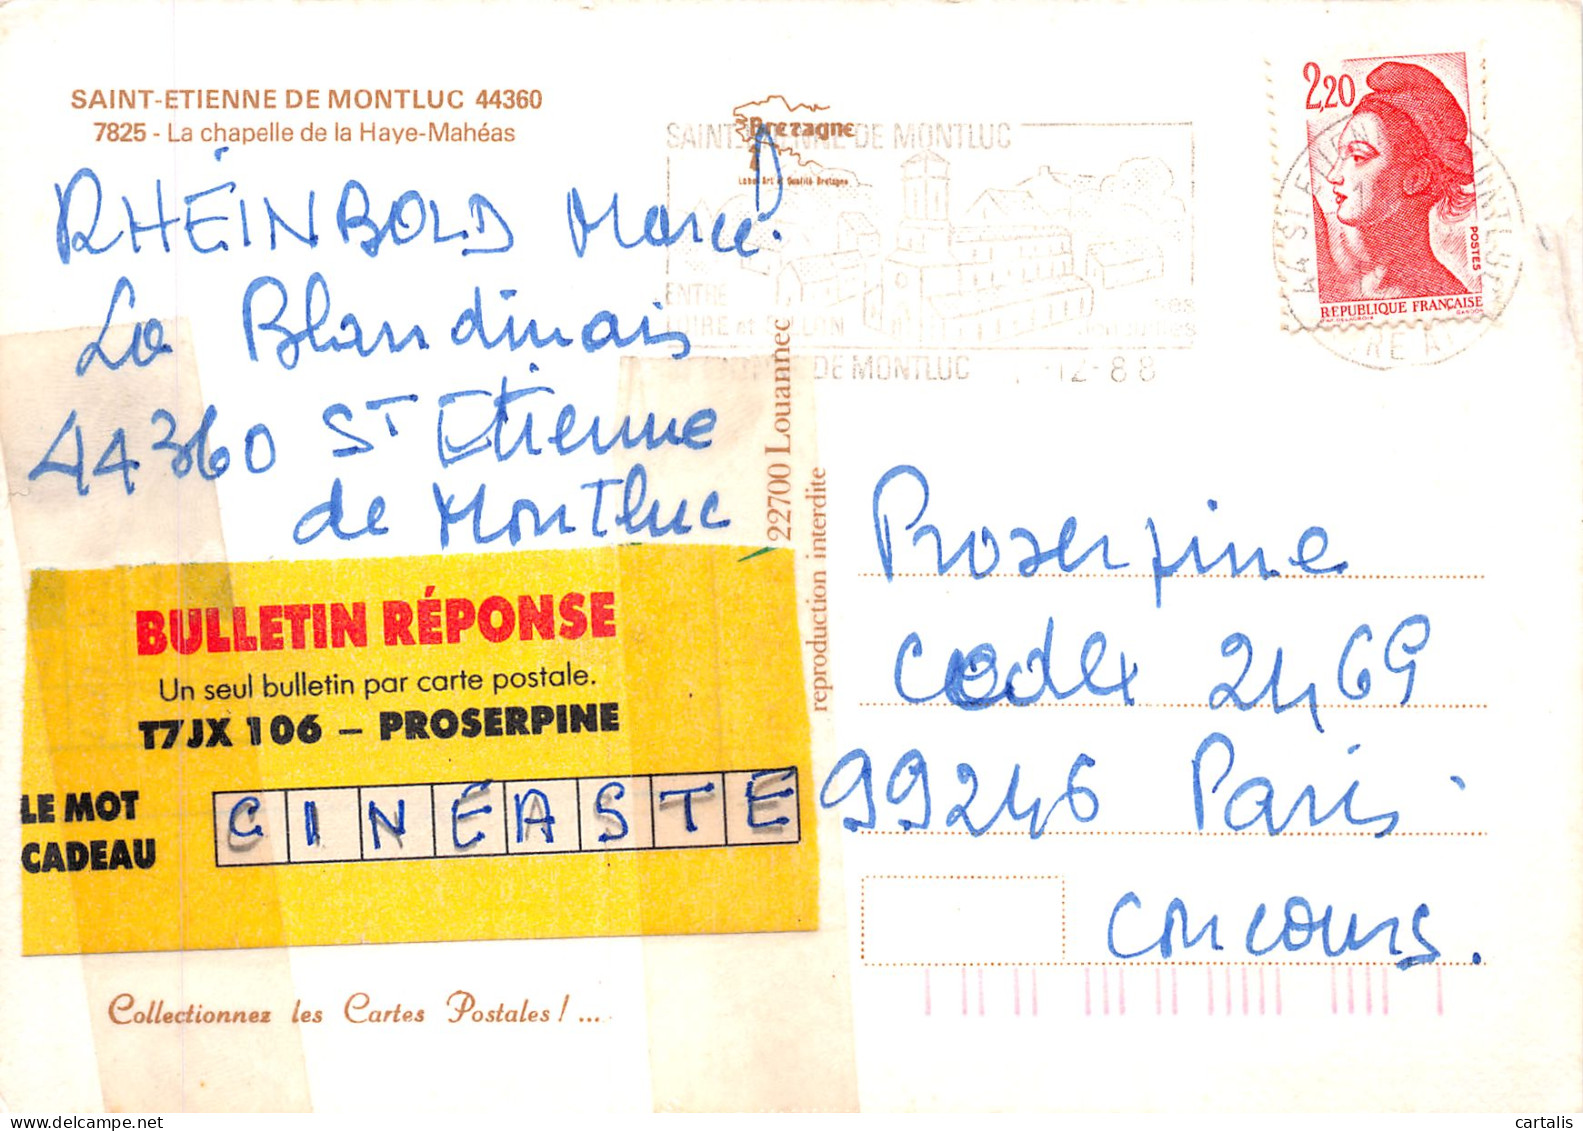 SAINT-ETIENNE DE MONTLUC 44360
7825 - La chapelle de la Haye-Mahéas
RHÉINBOLD Marcel
La Blandinais
44360 ST Etienne
de MonTluc
BULLETIN RÉPONSE
Un seul bulletin par carte postale.
T7JX 106 – PROSERPINE
LE MOT
CADEAU
CINÉASTE
Collectionnez les Cartes Postales ! ...
Bretagne
Label Art et Qualité Bretagne
DE MONTLUC
ENTRE
LOIRE et SILLON
DE MONTLUC
-12-88
22700 Louannec
reproduction interdite
2,20
POSTES
REPUBLIQUE FRANÇAISE
44 ST ETIEN
Proserpine
codex 2469
99246 Paris
concours.
cartalis